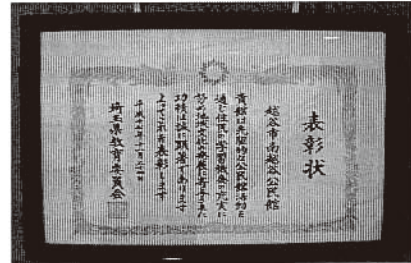 表彰状
越谷市南越谷公民館
貴館は先駆的な公民館活動を
通じ住民の学習機会の充実に
努め地域文化の発展に寄与された
功績は誠に顕著であります
よってこれを表彰します
平成十七年十一月二四日
埼玉県教育委員会